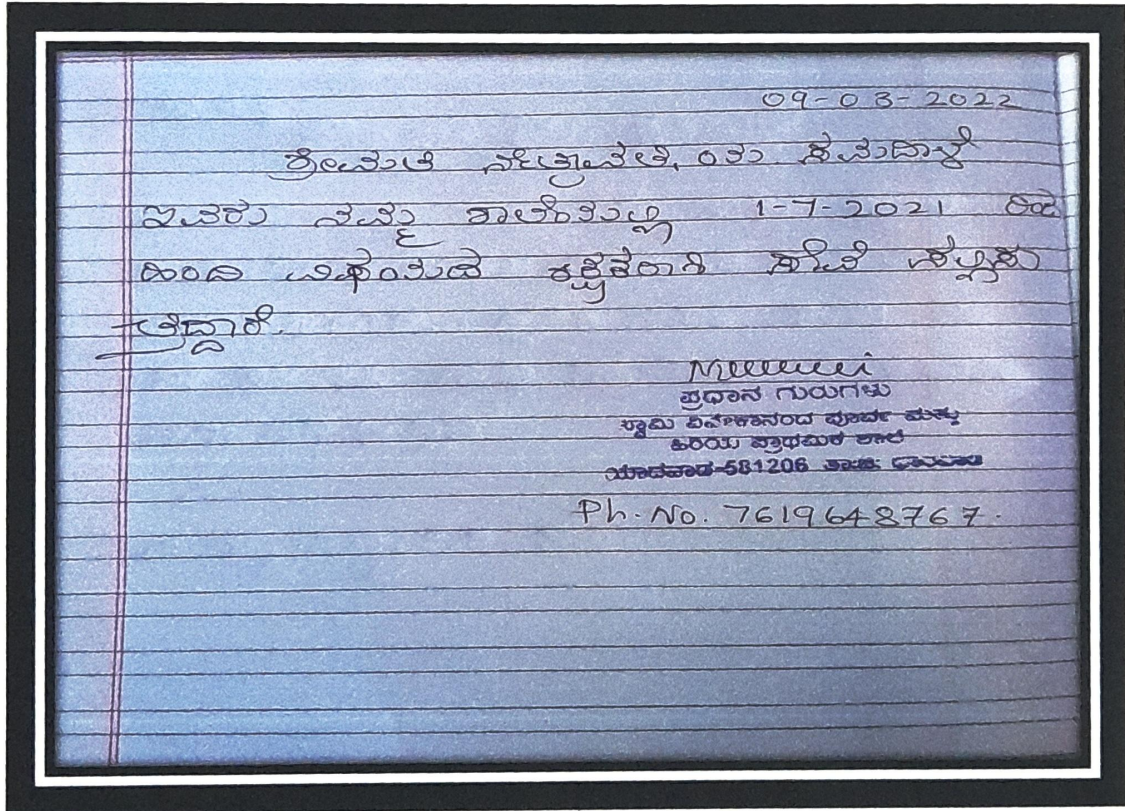 09-03-2022
ಶ್ರೀಮತಿ ನೇತ್ರಾವತಿ
ಇವರು ನಮ್ಮ ಶಾಲೆಯಲ್ಲಿ 1-7-2021 ರಿಂದ
ಹಿಂದಿ ವಿಷಯದ ಶಿಕ್ಷಕರಾಗಿ ಸೇವೆ ಸಲ್ಲಿಸು
ತ್ತಿದ್ದಾರೆ.
ಪ್ರಧಾನ ಗುರುಗಳು
ಸ್ವಾಮಿ ವಿವೇಕಾನಂದ ಪೂರ್ವ ಮತ್ತು
ಹಿರಿಯ ಪ್ರಾಥಮಿಕ ಶಾಲೆ
ಯಾದವಾಡ-581206
Ph. No. 7619648767.